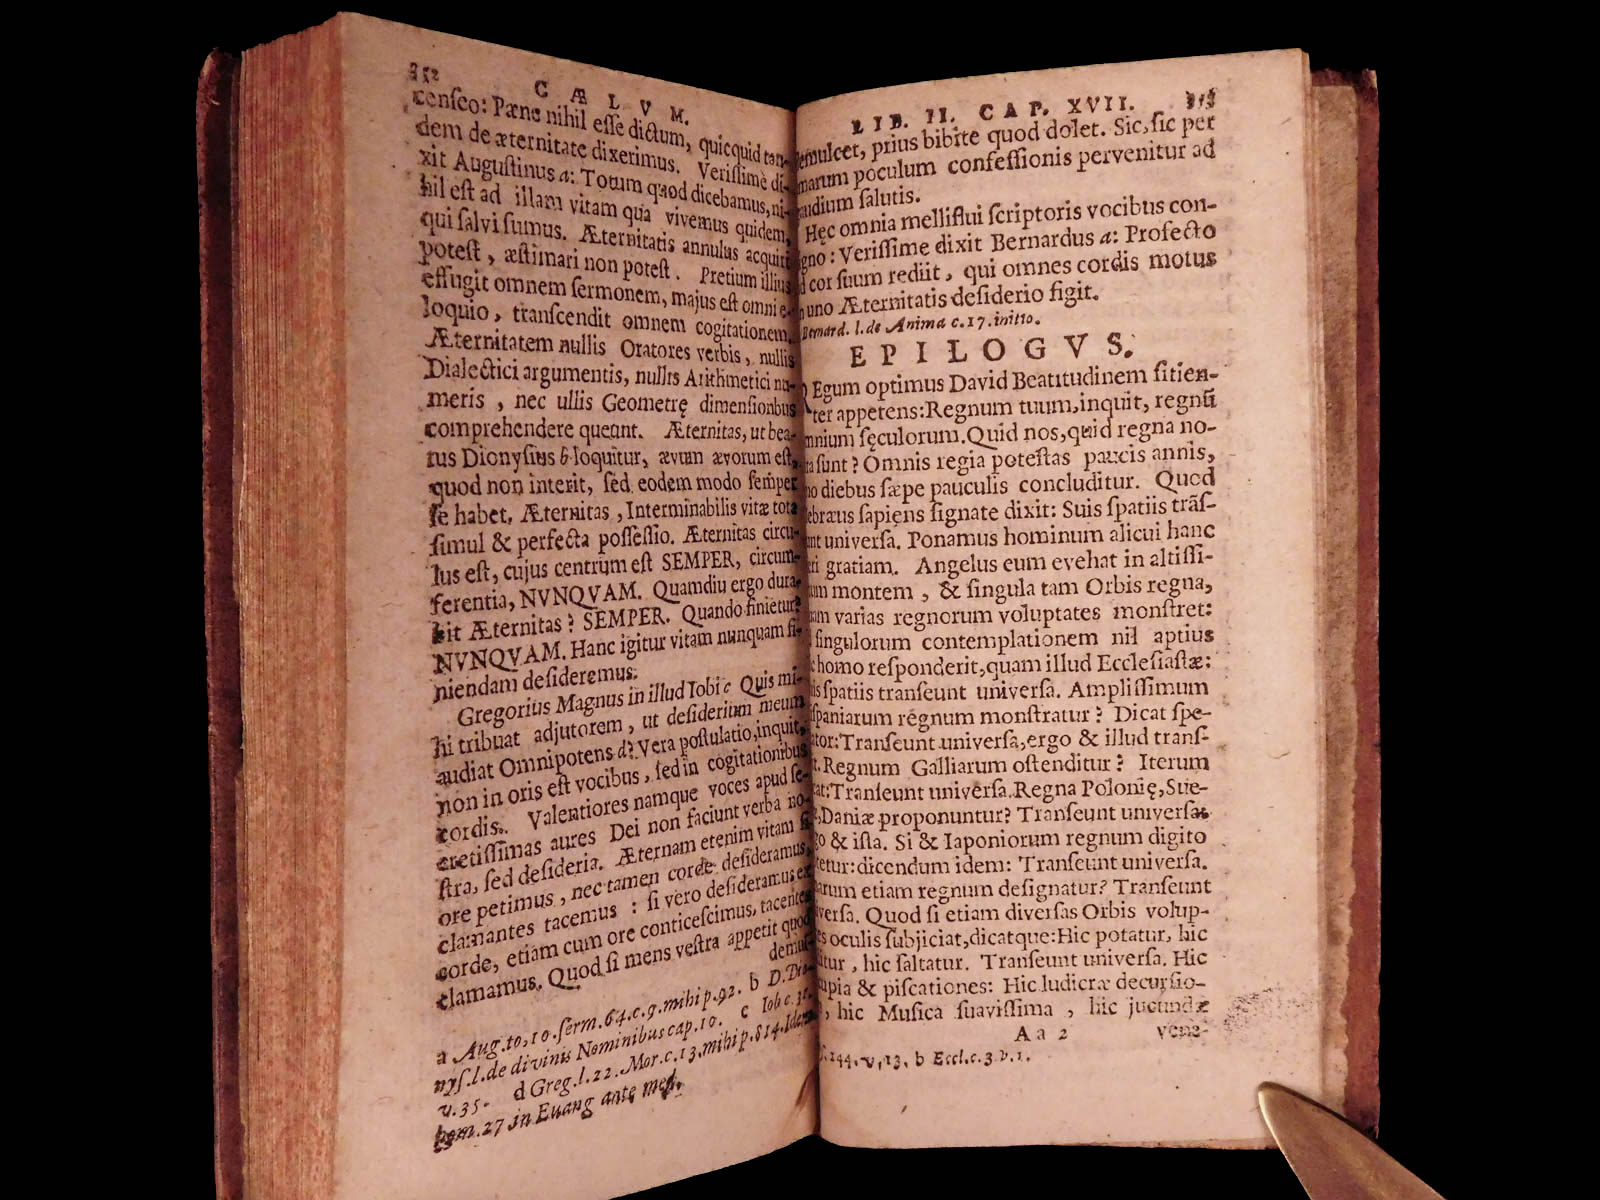 352
CÆLVM.
censeo: Pæne nihil esse dictum, quicquid tan-
dem de æternitate dixerimus. Verissimè di-
xit Augustinus a: Totum quod dicebamus, ni-
hil est ad illam vitam qua vivemus quidem,
qui salvi sumus. Æternitatis annulus acquiri
potest, æstimari non potest. Pretium illius
effugit omnem sermonem, majus est omni e-
loquio, transcendit omnem cogitationem.
Æternitatem nullis Oratores verbis, nullis
Dialectici argumentis, nullis Arithmetici nu-
meris, nec ullis Geometrę dimensionbus
comprehendere queant. Æternitas, ut bea-
tus Dionysius b loquitur, ævum ævorum est,
quod non interit, sed eodem modo semper
se habet. Æternitas, Interminabilis vitæ tota
simul & perfecta possessio. Æternitas circu-
lus est, cujus centrum est SEMPER, circum-
ferentia, NVNQVAM. Quamdiu ergo dura-
bit Æternitas? SEMPER. Quando finietur?
NVNQVAM. Hanc igitur vitam nunquam fi-
niendam desideremus.
Gregorius Magnus in illud Iobi c Quis mi-
hi tribuat adjutorem, ut desiderium meum
audiat Omnipotens d? Vera postulatio, inquit,
non in oris est vocibus, sed in cogitationibus
cordis. Valentiores namque voces apud se-
cretissimas aures Dei non faciunt verba no-
stra, sed desideria. Æternam etenim vitam si
ore petimus, nec tamen corde desideramus,
clamantes tacemus: si vero desideramus ex
corde, etiam cum ore conticescimus, tacentes
clamamus. Quod si mens vestra appetit quod
demul-
a Aug. to, 10. serm. 64. c. 9. mihi p. 92. b D. Dio-
nys. l. de divinis Nominibus cap. 10. c Iob c. 31.
v. 35. d Greg. l. 22. Mor. c. 13. mihi p. 814. Idem
hom. 27 in Euang ante med.
LIB. II. CAP. XVII.
demulcet, prius bibite quod dolet. Sic, sic per
amarum poculum confessionis pervenitur ad
gaudium salutis.
Hęc omnia melliflui scriptoris vocibus con-
signo: Verissime dixit Bernardus a: Profecto
ad cor suum rediit, qui omnes cordis motus
in uno Æternitatis desiderio figit.
Bernard. l. de Anima c. 17. initio.
EPILOGVS.
REgum optimus David Beatitudinem sitien-
ter appetens: Regnum tuum, inquit, regnū
omnium sęculorum. Quid nos, quid regna no-
stra sunt? Omnis regia potestas paucis annis,
imo diebus sæpe pauculis concluditur. Quod
Hebræus sapiens signate dixit: Suis spatiis trās-
eunt universa. Ponamus hominum alicui hanc
fieri gratiam. Angelus eum evehat in altissi-
mum montem, & singula tam Orbis regna,
quam varias regnorum voluptates monstret:
singulorum contemplationem nil aptius
homo responderit, quam illud Ecclesiastæ:
Suis spatiis transeunt universa. Amplissimum
Hispaniarum regnum monstratur? Dicat spe-
ctator: Transeunt universa, ergo & illud trans-
it. Regnum Galliarum ostenditur? Iterum
dicat: Transeunt universa. Regna Polonię, Sue-
ciæ, Daniæ proponuntur? Transeunt universa,
ergo & ista. Si & Iaponiorum regnum digito
notetur: dicendum idem: Transeunt universa.
narum etiam regnum designatur? Transeunt
universa. Quod si etiam diversas Orbis volup-
tates oculis subjiciat, dicatque: Hic potatur, hic
luditur, hic saltatur. Transeunt universa. Hic
aucupia & piscationes: Hic ludicræ decursio-
nes, hic Musica suavissima, hic jucundæ
Aa 2 vena-
144. v, 13. b Eccl. c. 3. v. 1.